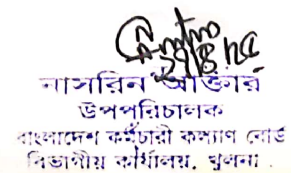 ২৭/৪/২৫
নাসরিন আক্তার
উপপরিচালক
বাংলাদেশ কর্মচারী কল্যাণ বোর্ড
বিভাগীয় কার্যালয়, খুলনা